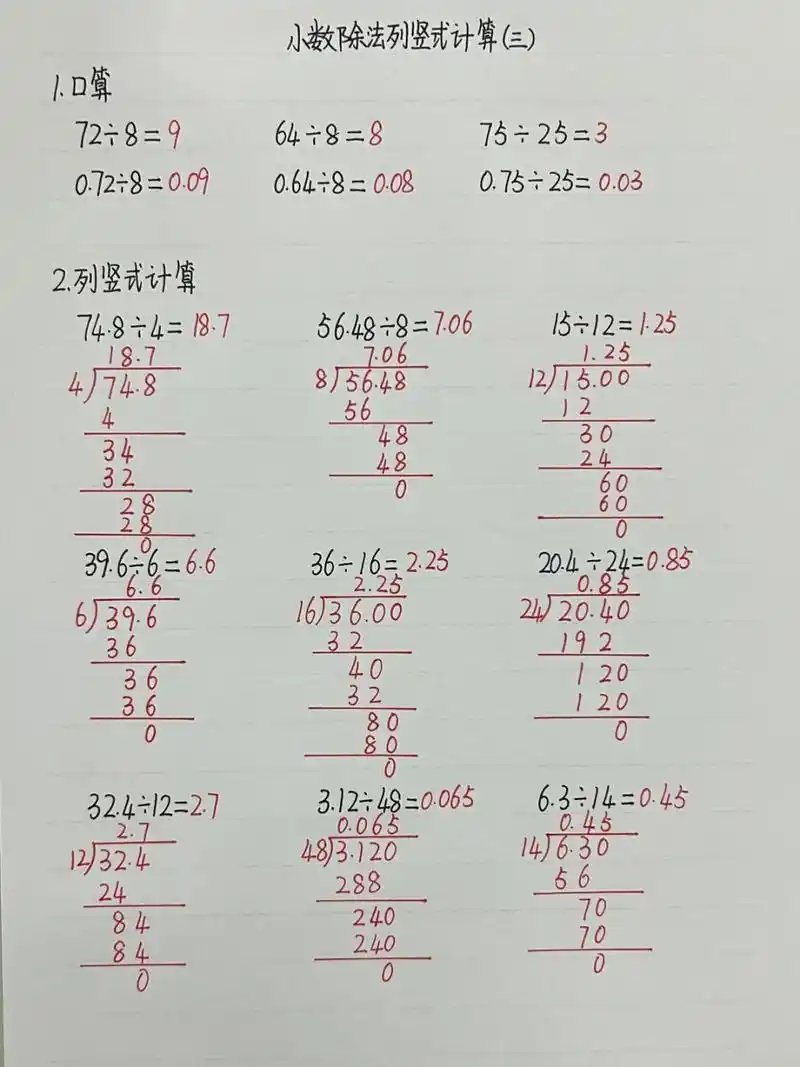 小数除法列竖式计算(三)
1.口算
72÷8=9 64÷8=8 75÷25=3
0.72÷8=0.09 0.64÷8=0.08 0.75÷25=0.03
2.列竖式计算
74.8÷4=18.7 56.48÷8=7.06 15÷12=1.25
18.7 7.06 1.25
4)74.8 8)56.48 12)15.00
4 56 12
34 48 30
32 48 24
28 0 60
28 60
0 0
39.6÷6=6.6 36÷16=2.25 20.4÷24=0.85
6.6 2.25 0.85
6)39.6 16)36.00 24)20.40
36 32 192
36 40 120
36 32 120
0 80 0
80
0
32.4÷12=2.7 3.12÷48=0.065 6.3÷14=0.45
2.7 0.065 0.45
12)32.4 48)3.120 14)6.30
24 288 56
84 240 70
84 240 70
0 0 0